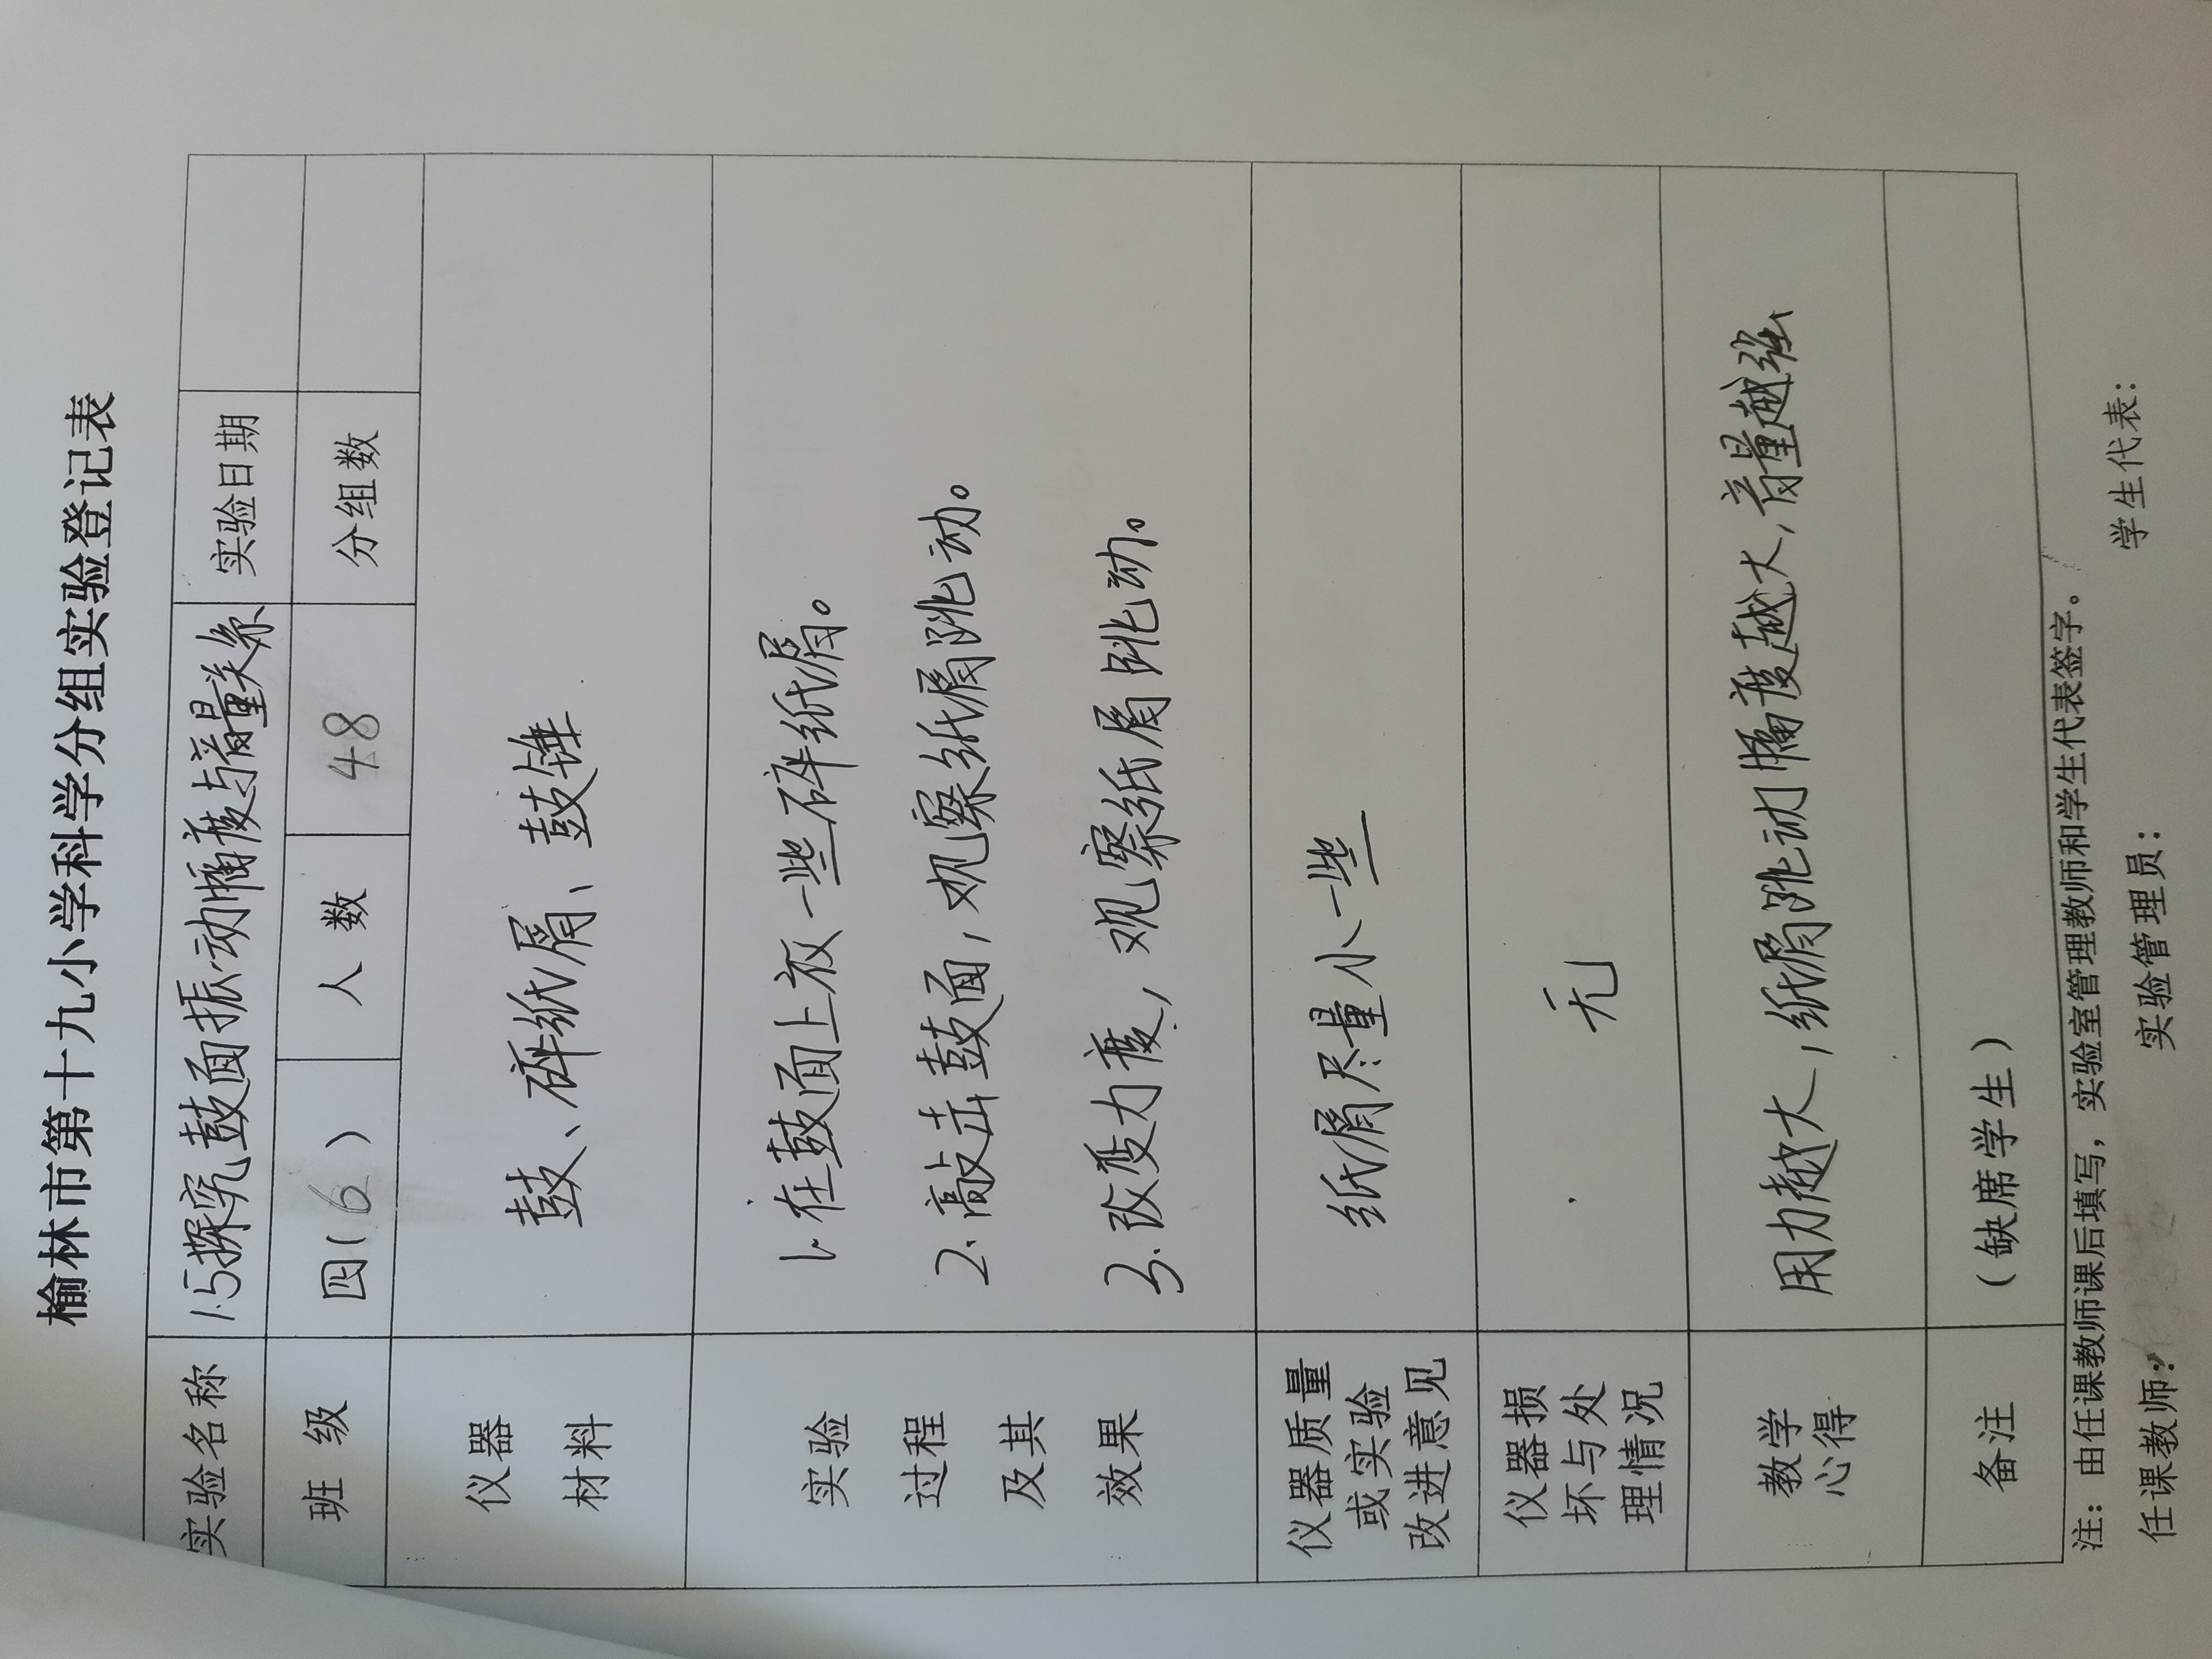 榆林市第十九小学科学分组实验登记表
实验名称 1.5探究鼓面振动幅度与音量关系 实验日期
班 级 四(6) 人 数 48 分组数
仪器 材料 鼓、碎纸屑、鼓锤
实验 1.在鼓面上放一些碎纸屑。
过程 2.敲击鼓面,观察纸屑跳动。
及其
效果 3.改变力度,观察纸屑跳动。
仪器质量
或实验 纸屑尽量小一些
改进意见
仪器损
坏与处 无
理情况
教学
心得 用力越大,纸屑跳动幅度越大,音量越强
备注 (缺席学生)
注:由任课教师课后填写,实验室管理教师和学生代表签字。
任课教师: 实验管理员: 学生代表: